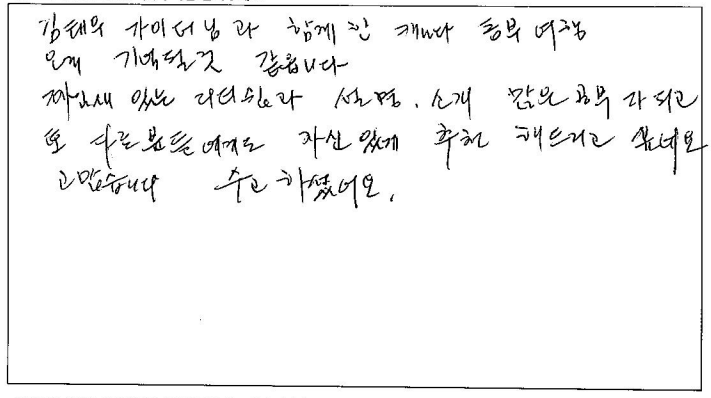 김태우 가이더님과 함께 한 캐나다 동부 여행
오래 기억될것 같읍니다
짜임새 있는 리더쉽과 설명, 소개 많은 공부가 되고
또 다른 분들에게도 자신있게 추천 해드리고 싶네요
고맙습니다 수고하셨어요.